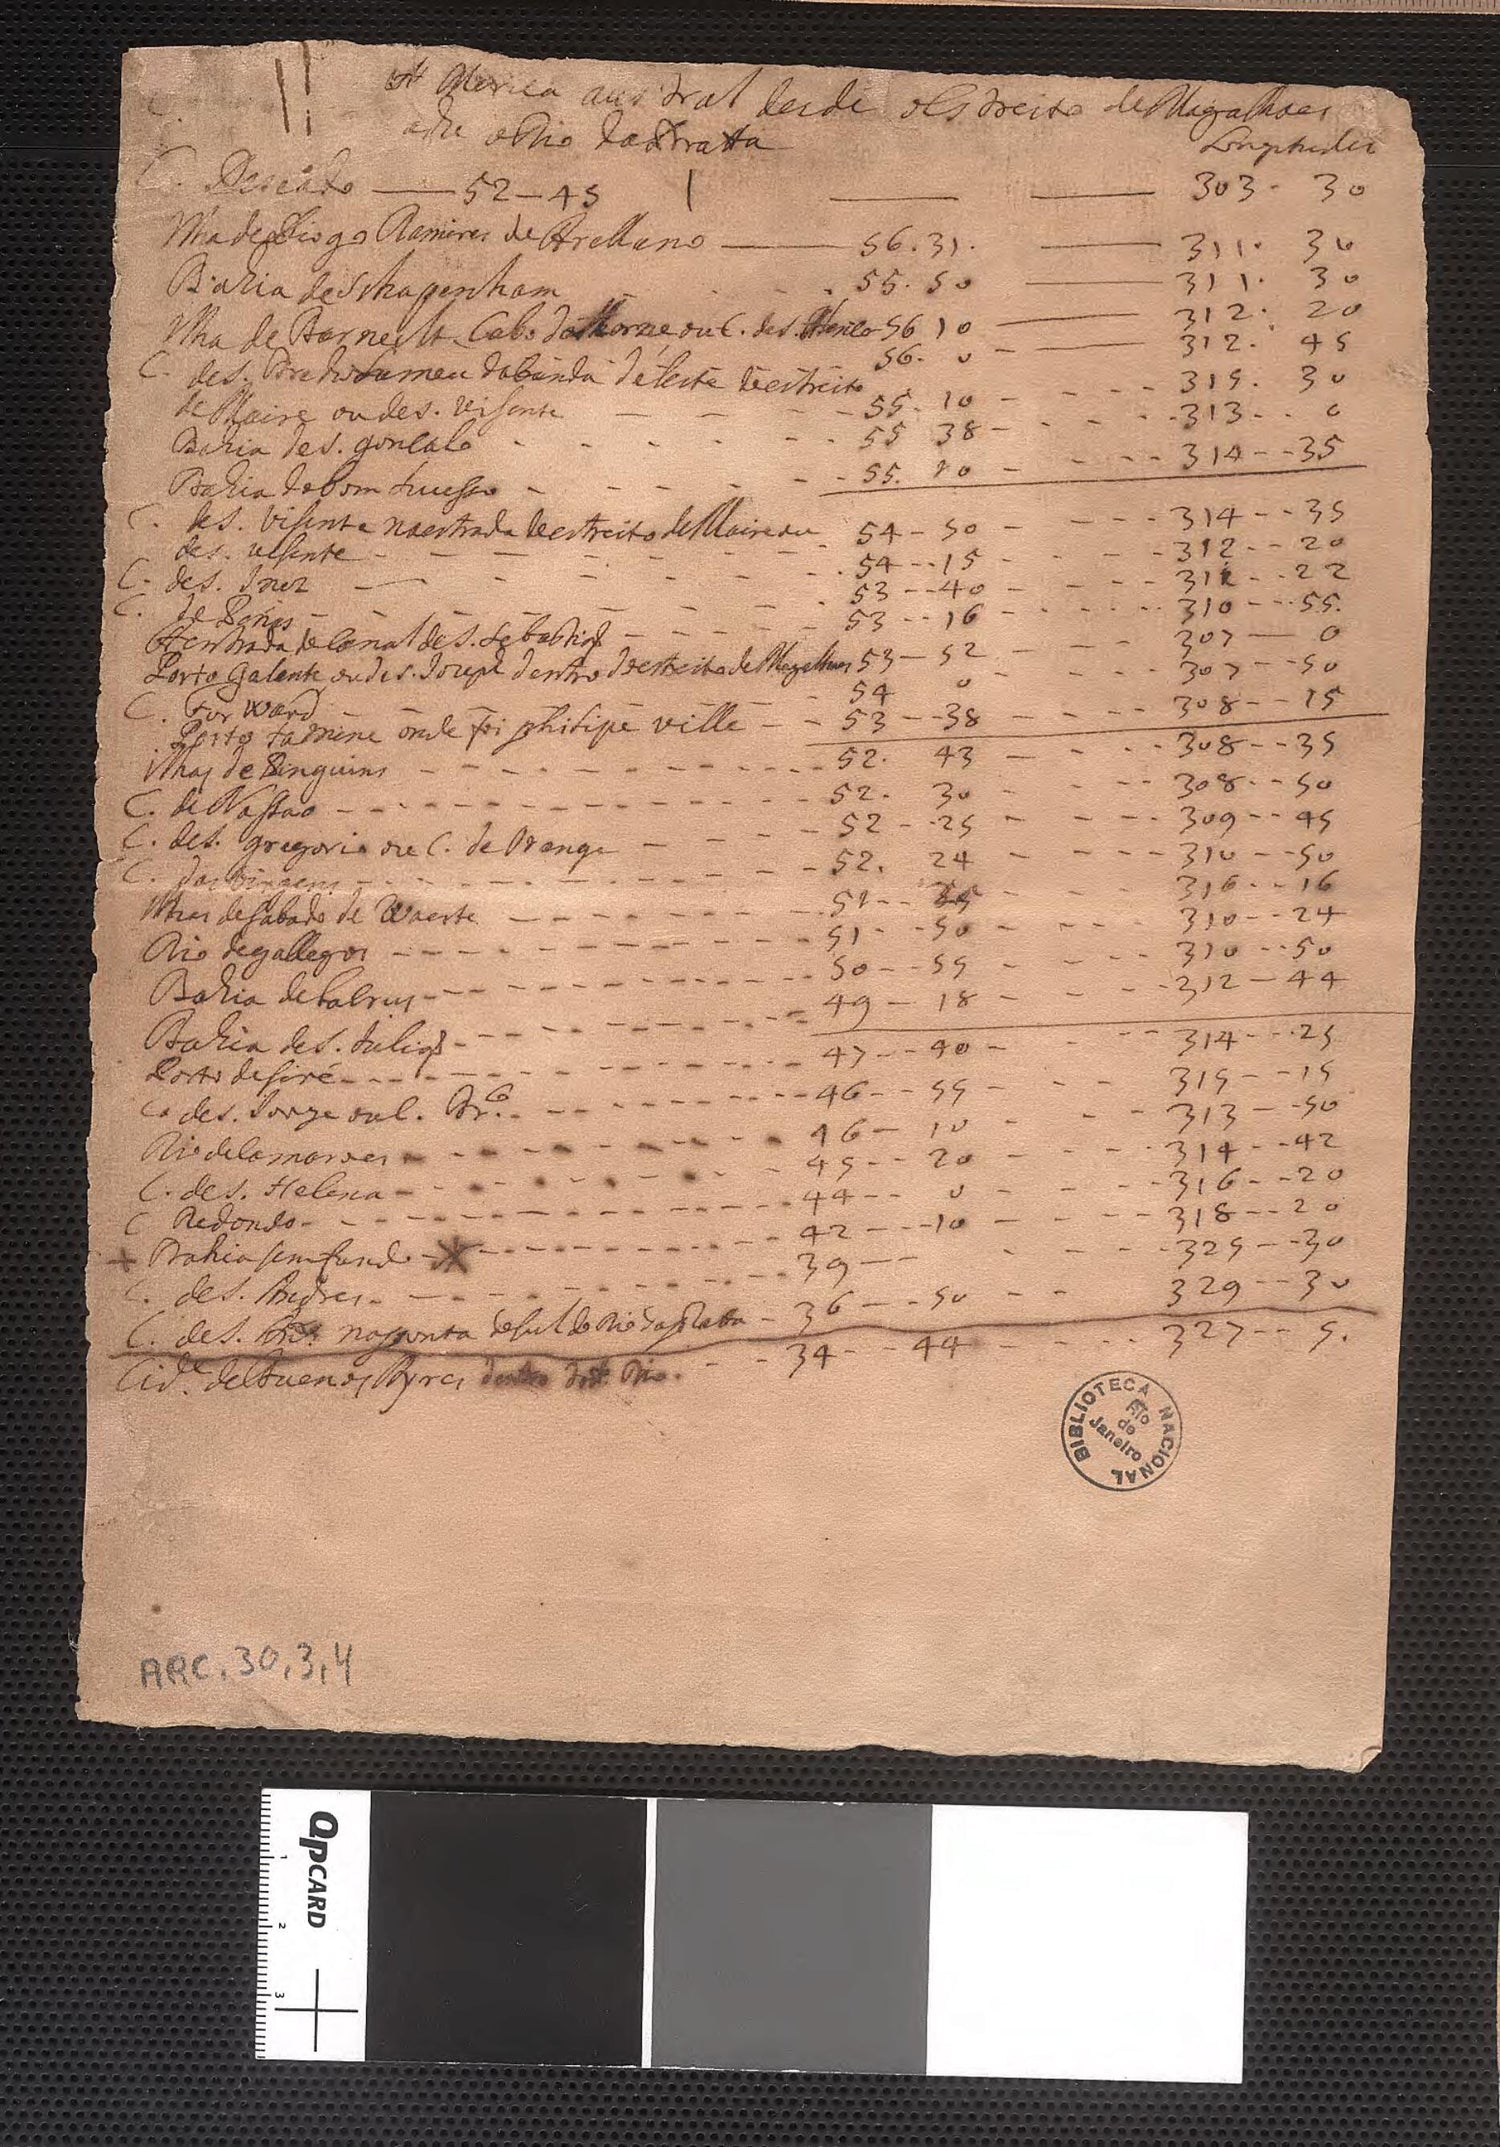 America austral desde o Estreito de Magalhaes
athe o Rio da Pratta
Longitudes
C. Deseado — 52 — 45 — 303 - 30
Ilha de Diogo Ramires de Arellano — 56. 31. — 311. 30
Bahia de Schapenham 55. 50 — 311. 30
Ilha de Barnevelt 56 10 — 312. 20
Cabo de Horne ou C. de S. 56. 0 — 312. 45
C. de S. Bertholameu da banda de leste do estreito
de Maire ou de S. Visente 55. 10 - 315. 30
Bahia de S. Goncalo 55 38 - 313 - 0
Bahia do bom sucesso 55. 10 - 314 - 35
C. de S. Visente na entrada do estreito de Maire ou
de S. Visente 54 - 50 - 314 - 35
C. de S. Inez 54 - 15 - 312 - 20
C. de Penas 53 - 40 - 311 - 22
A entrada do Canal de S. Sebastião 53 - 16 - 310 - 55.
Porto Galante ou de S. Joseph dentro do estreito de Magalhaes 53 - 52 - 307 - 0
C. Forward 54 0 - 307 - 50
Porto Famine onde foi Philipe ville 53 - 38 - 308 - 15
Ilhas de Pinguins 52. 43 - 308 - 35
C. de Nassao 52. 30 - 308 - 50
C. de S. Gregorio ou C. de Orange 52 - 25 - 309 - 45
C. das Virgens 52. 24 - 310 - 50
Ilhas de Sabado de Waerte 51 - 316 - 16
Rio de gallegos 51 - 50 - 310 - 24
Bahia de 50 - 55 - 310 - 50
Bahia de S. Julião 49 - 18 - 312 - 44
Porto desiré 47 - 40 - 314 - 25
C. de S. Jorge ou C. 46 - 55 - 315 - 15
Rio de Camarones 46 - 10 - 313 - 50
C. de S. Helena 45 - 20 - 314 - 42
C Redondo 44 - 0 - 316 - 20
+ Bahia sem fundo 42 - 10 - 318 - 20
C. de S. Andres 39 - 325 - 30
C. de S. na ponta do sul do Rio da plata - 36 - 50 - 329 - 30
Cid.e de Buenos Ayres dentro Rio. 34 - 44 - 327 - 5.
BIBLIOTECA NACIONAL
Rio
de
Janeiro
ARC. 30, 3, 4
QPCARD
1
2
3